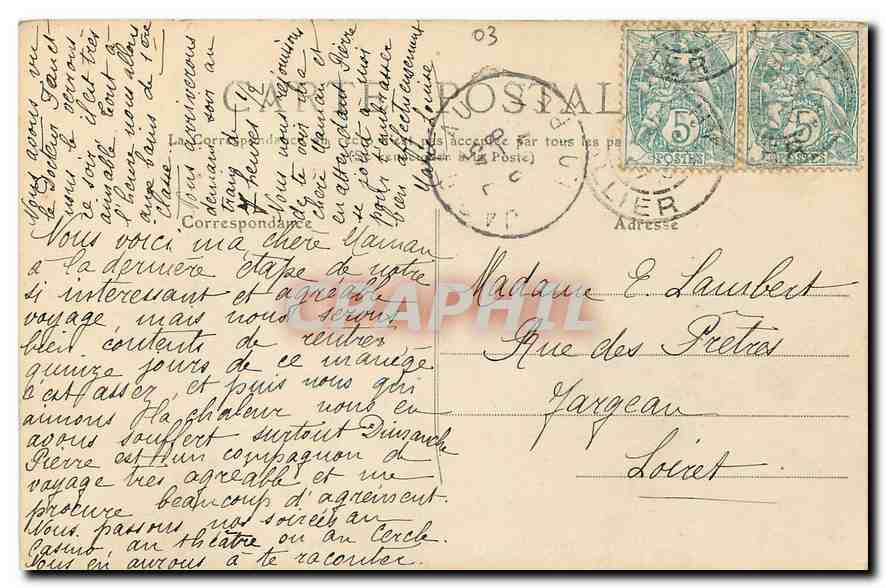 03
CARTE POSTALE
Correspondance
Adresse
5c
POSTES
5c
POSTES
LIER
LIER
CPAPHIL
Nous voici ma chère Maman
à la dernière étape de notre
si interessant et agréable
voyage, mais nous serons
bien contents de rentrer,
quinze jours de ce manège
c'est assez, et puis nous qui
aimons la chaleur nous en
avons souffert surtout Dimanche
Pierre est un compagnon de
voyage très agréable et me
procure beaucoup d'agrément.
Nous passons nos soirées au
Casino, au théâtre ou au Cercle.
Nous en aurons à te raconter
Nous avons vu
le Docteur
nous le verrons
ce soir il est très
aimable. Tout à
l'heure nous allons
aux bains de 1ère
classe.
Nous arriverons
demain soir au
train de
7 heures 1/2
Nous nous réjouissons
de te voir
chère Maman et
en attendant Pierre
se joint à moi
pour t'embrasser
bien affectueusement
Marie Louise
Madame E. Lambert
Rue des Prêtres
Jargeau
Loiret